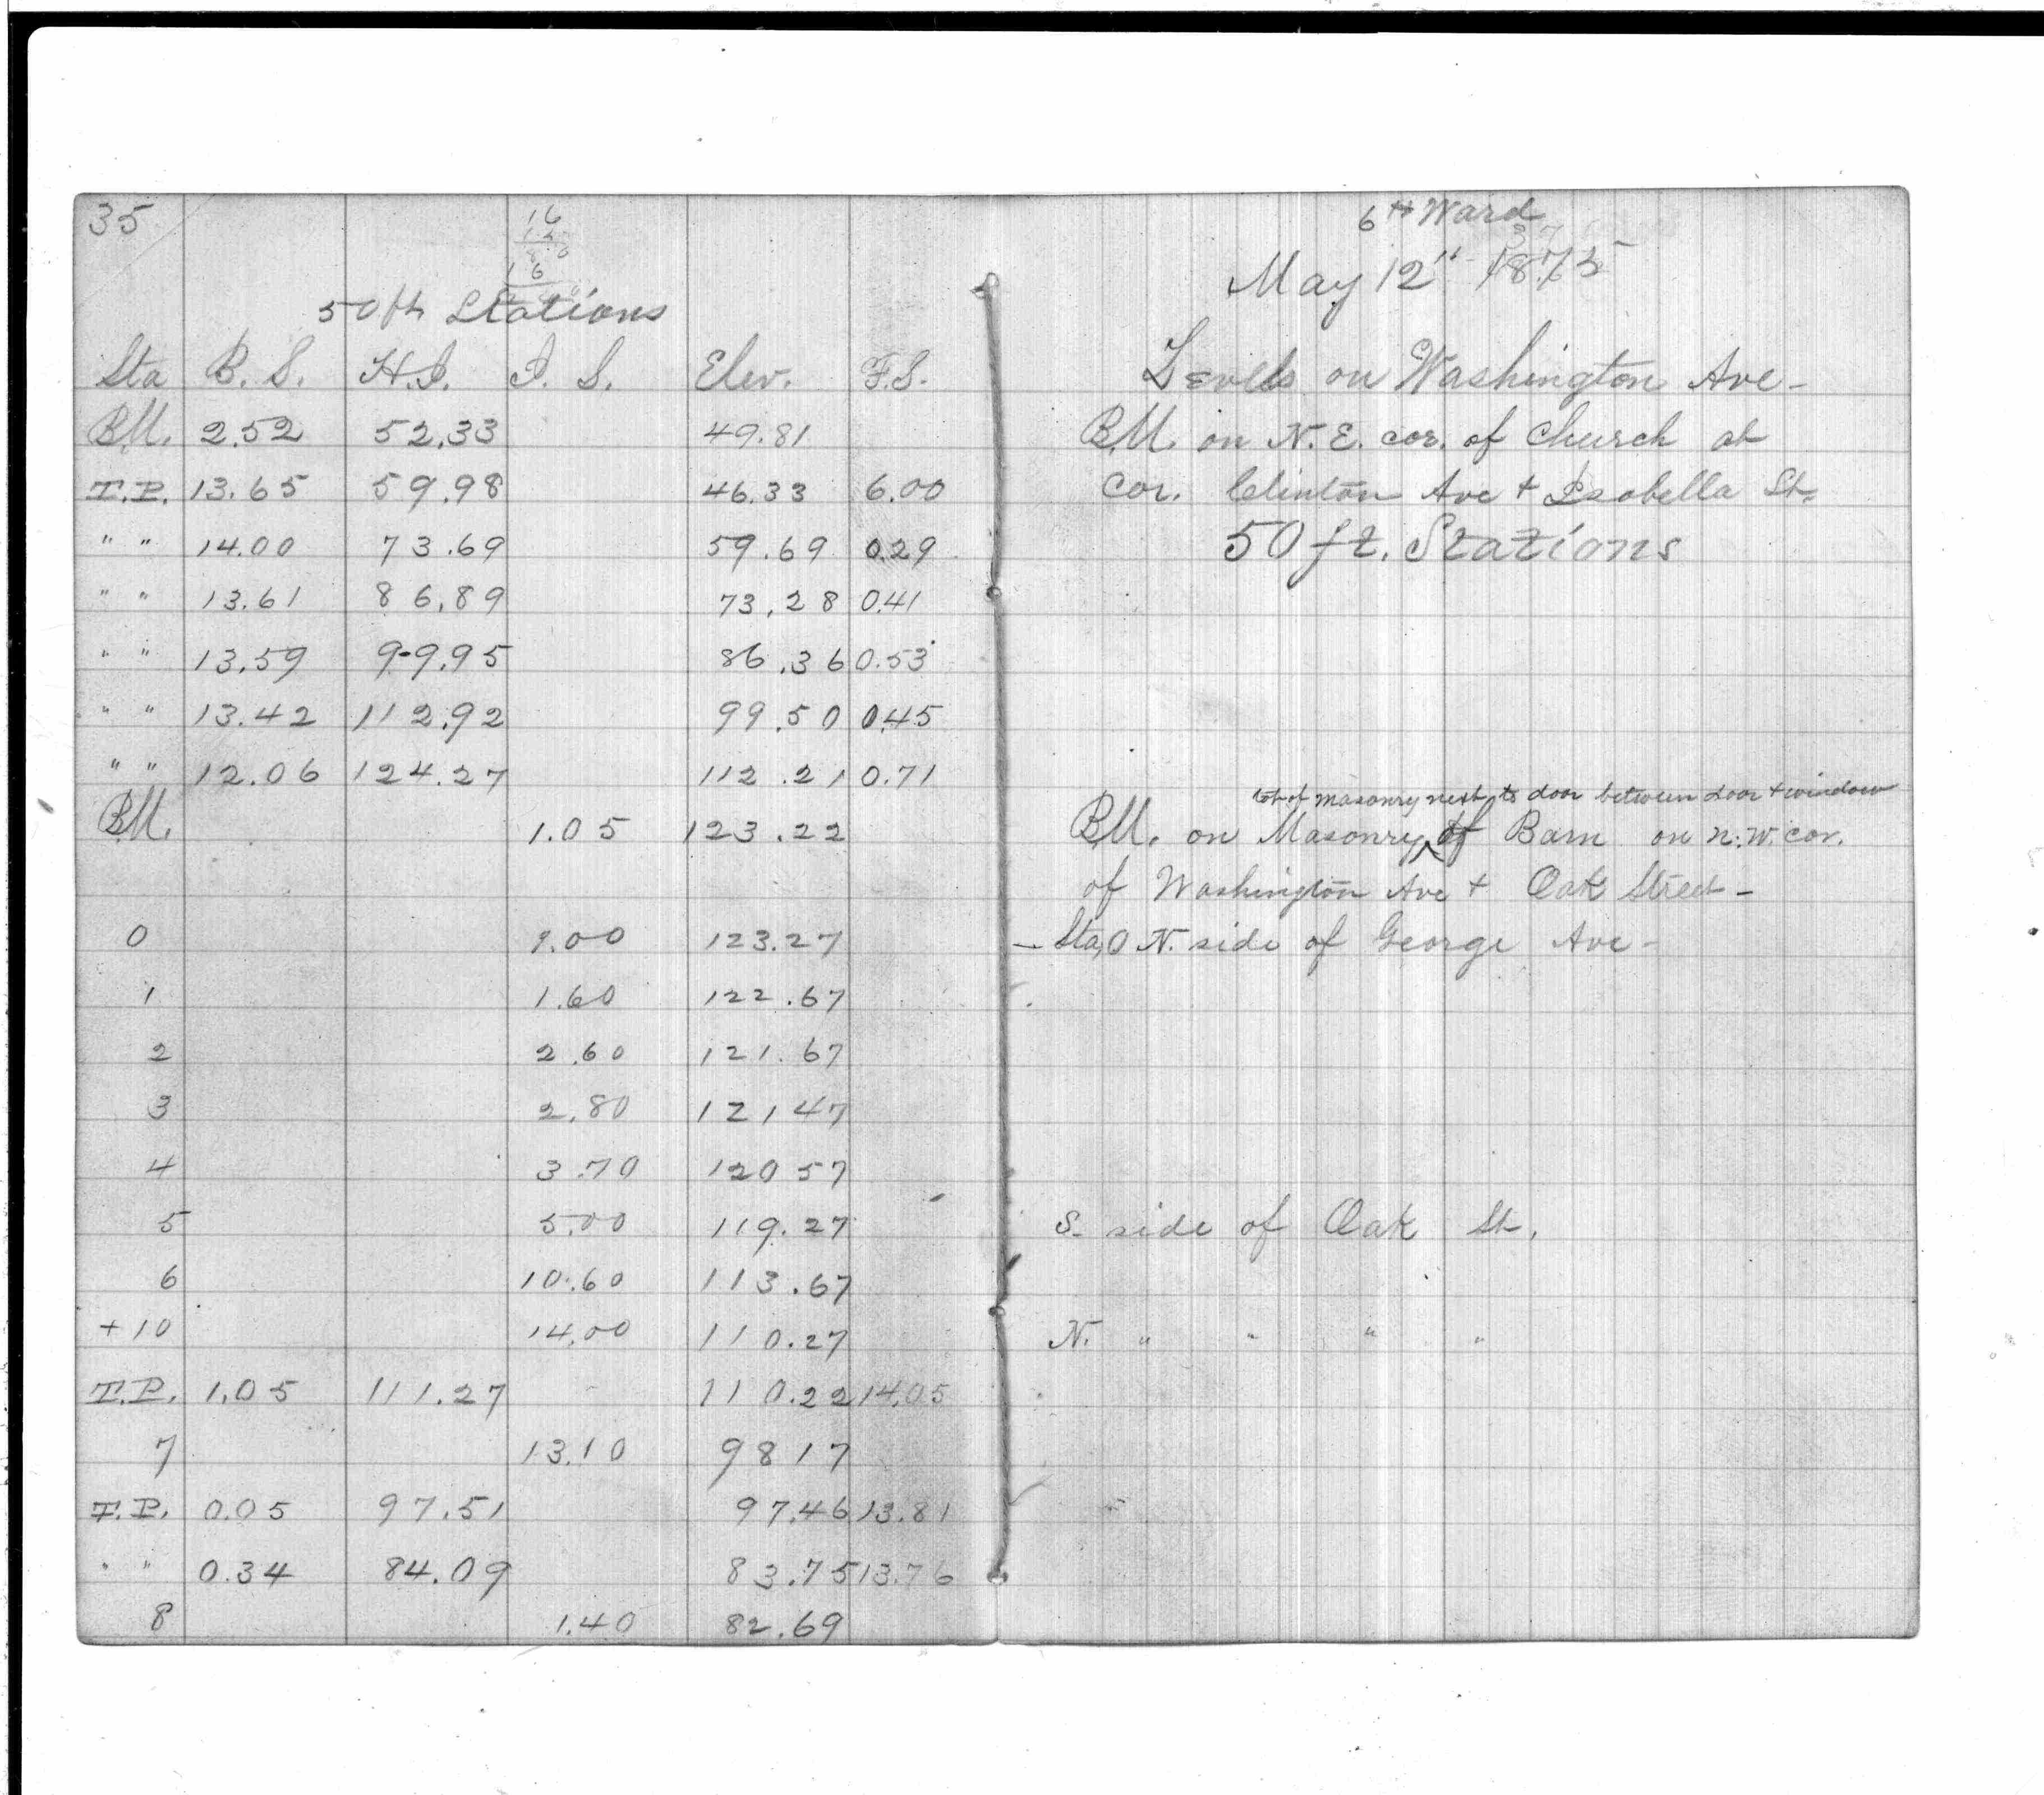 35
16
16
50 ft. Stations
Sta B. S. H.I. I. S. Elev. F.S.
B.M. 2.52 52.33 49.81
T.P. 13.65 59.98 46.33 6.00
" " 14.00 73.69 59.69 0.29
" " 13.61 86.89 73.28 0.41
" " 13.59 99.95 86.36 0.53
" " 13.42 112.92 99.50 0.45
" " 12.06 124.27 112.21 0.71
B.M. 1.05 123.22
0 1.00 123.27
1 1.60 122.67
2 2.60 121.67
3 2.80 121 47
4 3.70 120 57
5 5.00 119.27
6 10.60 113.67
+10 14.00 110.27
T.P. 1.05 111.27 110.22 14.05
7 13.10 98 17
T.P. 0.05 97.51 97.46 13.81
" " 0.34 84.09 83.75 13.76
8 1.40 82.69
6th Ward
37
May 12" 1875
Levels on Washington Ave -
B.M. on N.E. cor. of Church at
Cor. Clinton Ave + Isabella St.
50 ft. Stations
of masonry next to door between door + window
B.M. on Masonry of Barn on N.W. cor.
of Washington Ave + Oak Street -
- Sta. 0 N. side of George Ave -
S. side of Oak St.
N. " " " "